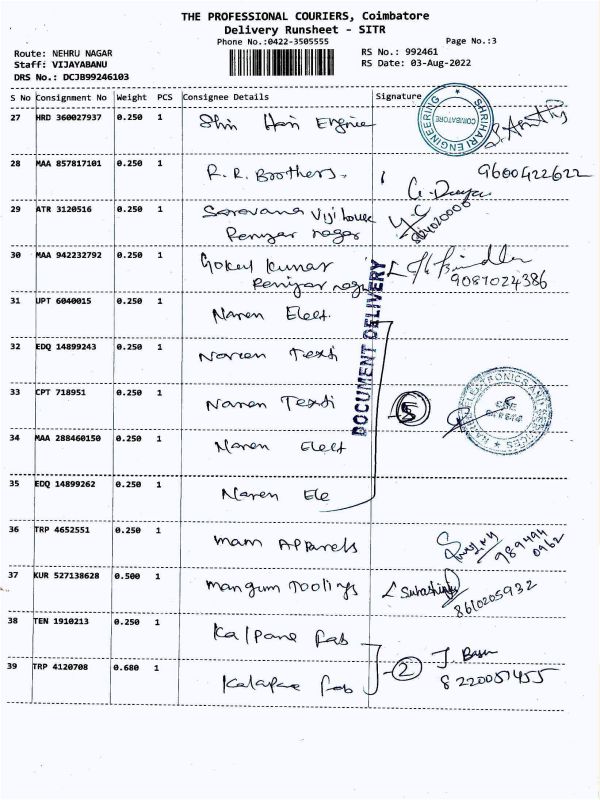 THE PROFESSIONAL COURIERS, Coimbatore
Delivery Runsheet - SITR
Phone No.:0422-3505555 Page No.:3
Route: NEHRU NAGAR RS No.: 992461
Staff: VIJAYABANU RS Date: 03-Aug-2022
DRS No.: DCJB99246103
S No Consignment No Weight PCS Consignee Details Signature
27 HRD 360027937 0.250 1 Shri Hari Engine
SHRIHARI ENGINEERING
COIMBATORE
28 MAA 857817101 0.250 1 R.R. Brothers. 9600422622
29 ATR 3120516 0.250 1 Saravana Viji house
Periyar nagar
30 MAA 942232792 0.250 1 Gokul Kumar
Periyar nagar 9087024386
31 UPT 6040015 0.250 1 Naren Elect.
DOCUMENT DELIVERY
32 EDQ 14899243 0.250 1 Naren Texti
33 CPT 718951 0.250 1 Naren Texti 5
34 MAA 288460150 0.250 1 Naren Elect
35 EDQ 14899262 0.250 1 Naren Ele
36 TRP 4652551 0.250 1 mam Apparels 989494
0962
37 KUR 527138628 0.500 1 mangum Toolings 8610205932
38 TEN 1910213 0.250 1 Kalpane fab
2
39 TRP 4120708 0.680 1 Kalapae fab 8220051455